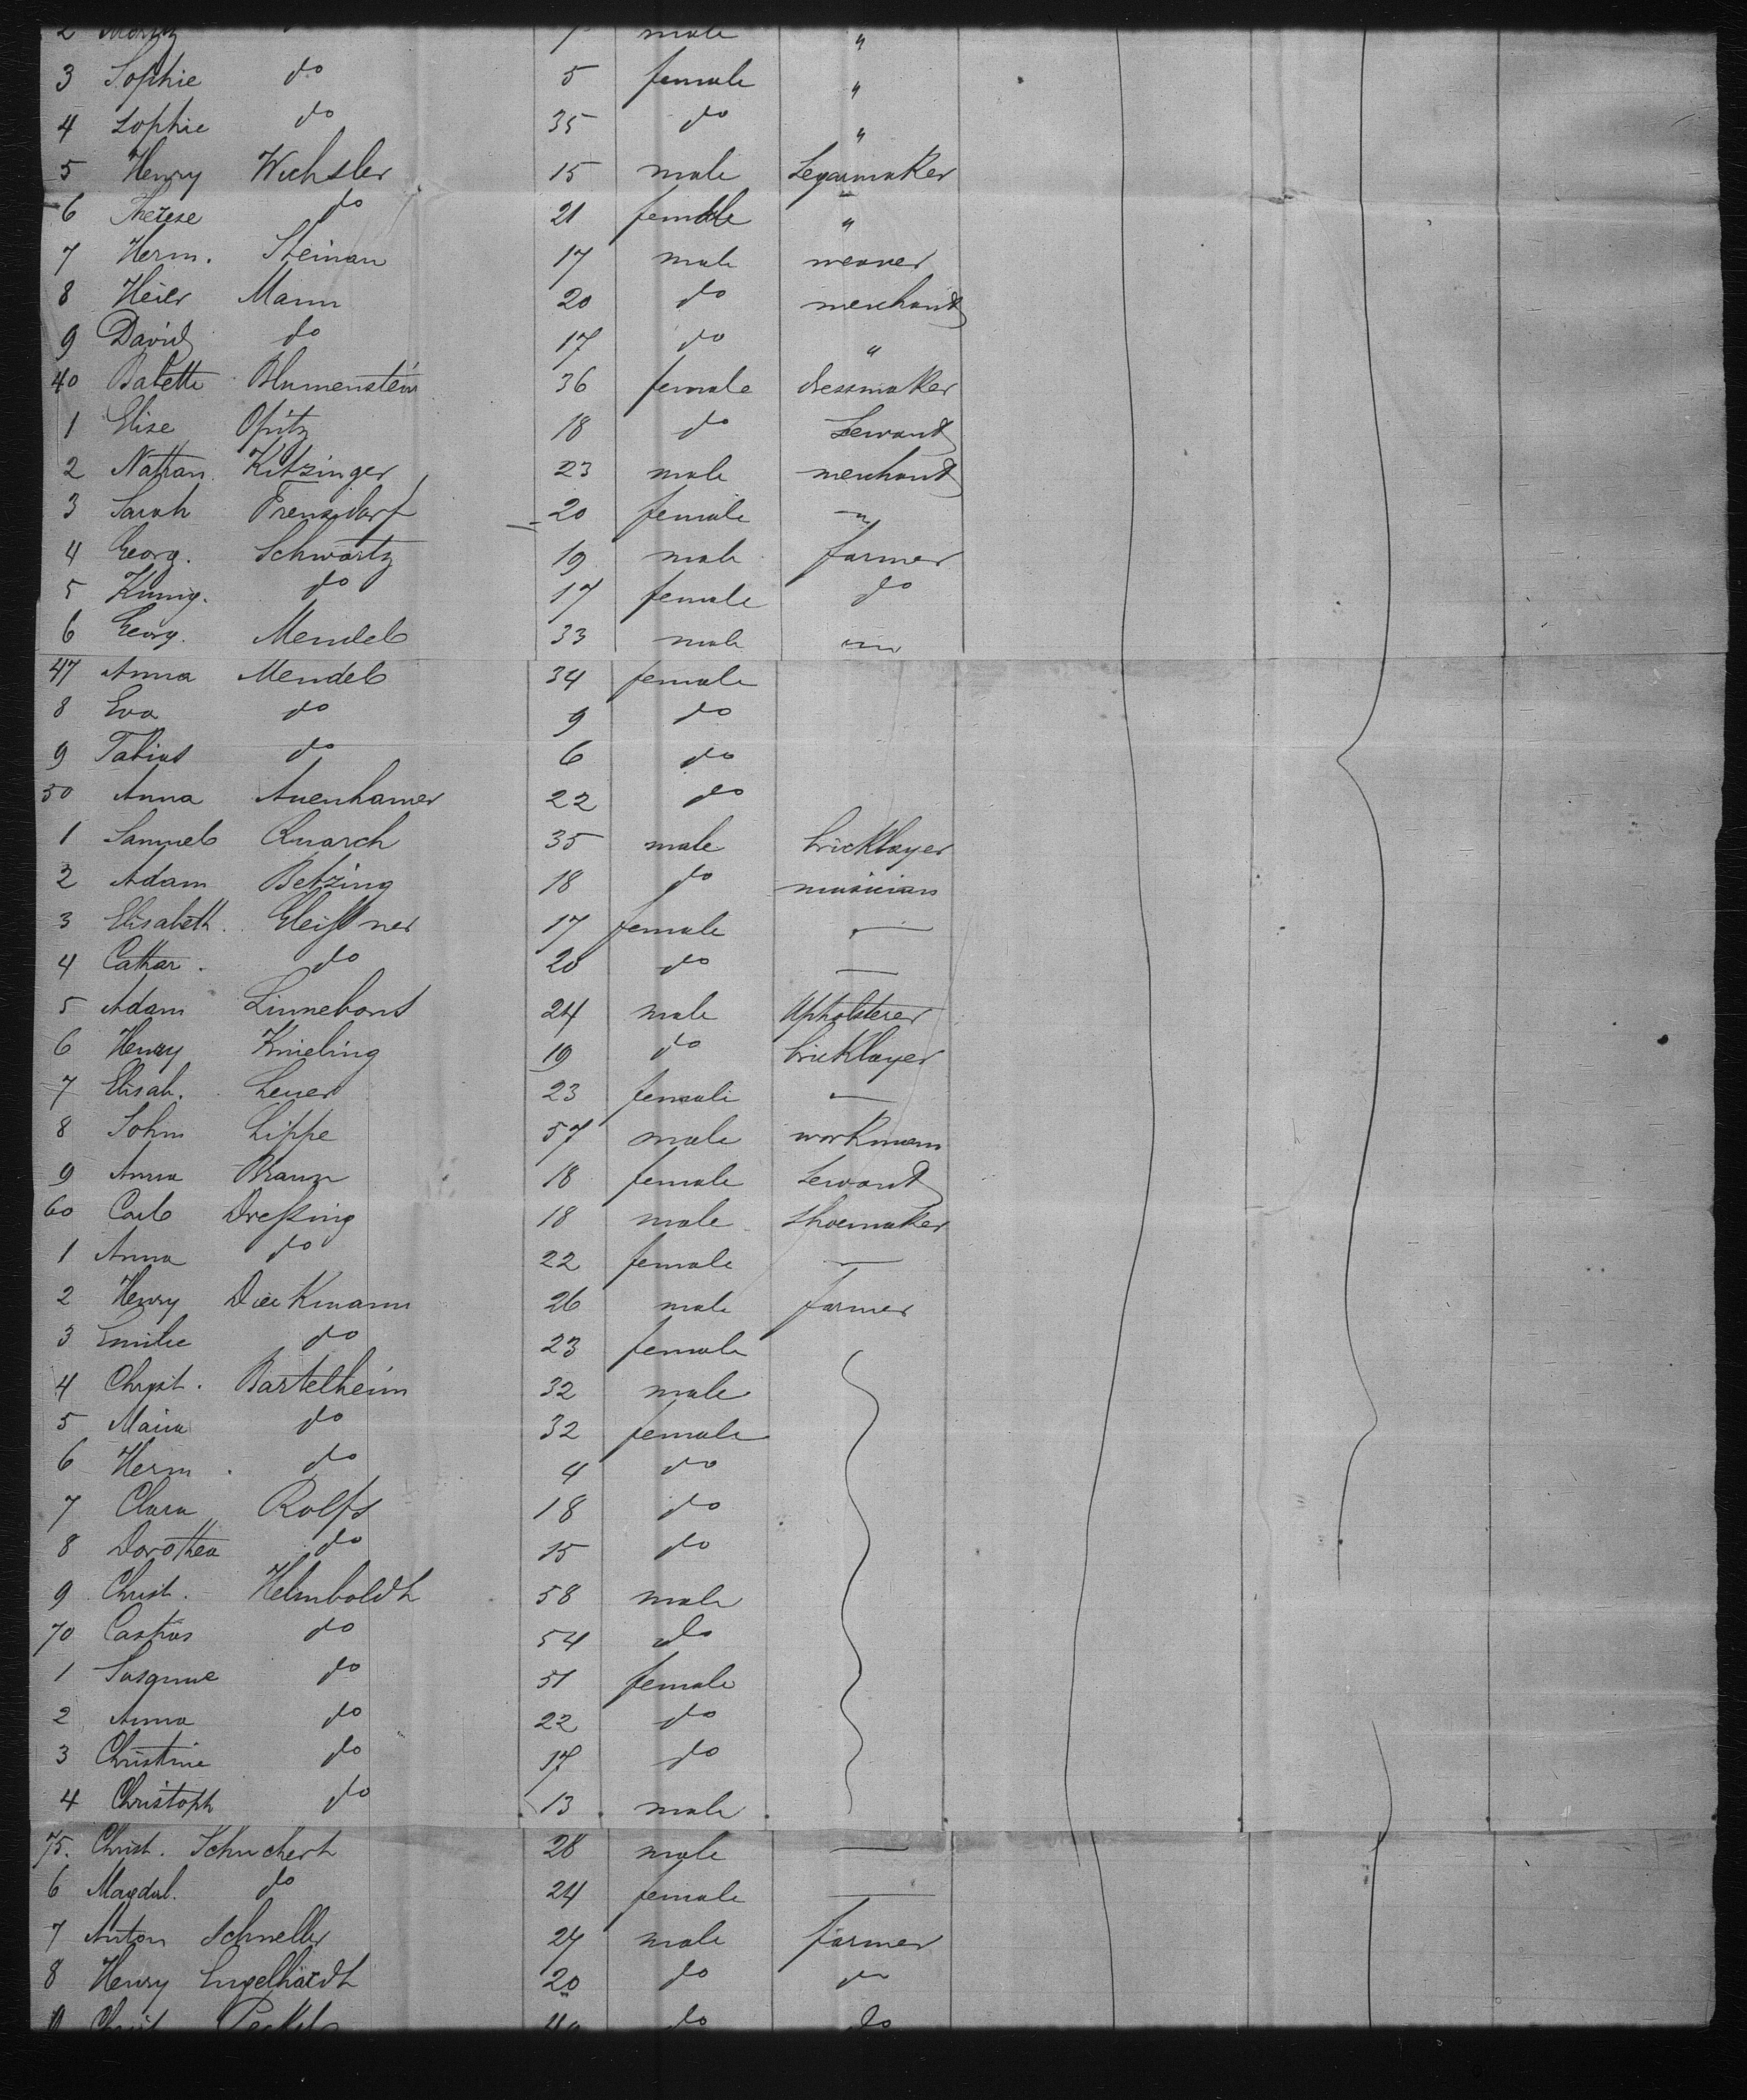 2 Moritz do 7 male "
3 Sophie do 5 female "
4 Sophie do 35 do "
5 Henry Wechsler 15 male Segarmaker
6 Therese do 21 female "
7 Herm. Steinau 17 male weaver
8 Meier Mann 20 do merchant
9 David do 17 do "
40 Babette Blumenstein 36 female dressmaker
1 Elise Opitz 18 do Servant
2 Nathan Kitzinger 23 male merchant
3 Sarah Frensdorf 20 female —
4 Georg. Schwartz 19 male farmer
5 Kunig. do 17 female do
6 Georg. Mendel 33 male
47 Anna Mendel 34 female
8 Eva do 9 do
9 Tobias do 6 do
50 Anna Auenhamer 22 do
1 Samuel Quarch 35 male bricklayer
2 Adam Betzing 18 do musician
3 Elisabeth. Gleißner 17 female —
4 Cathar. do 20 do —
5 Adam 24 male Upholsterer
6 Henry Knieling 19 do bricklayer
7 Elisab. Leuer 23 female —
8 John Lippe 57 male workman
9 Anna Braun 18 female Servant
60 Carl Dreßing 18 male Shoemaker
1 Anna do 22 female —
2 Henry Dieckmann 26 male farmer
3 Emilie do 23 female
4 Christ. Bartelheim 32 male
5 Maria do 32 female
6 Herm. do 4 do
7 Clara Rolfs 18 do
8 Dorothea do 15 do
9 Christ. Helmboldt 58 male
70 Caspar do 54 do
1 Susanne do 51 female
2 Anna do 22 do
3 Christine do 17 do
4 Christoph do 13 male
75. Christ. Schuchert 28 male —
6 Magdal. do 24 female —
7 Anton Schneller 27 male farmer
8 Henry Engelhardt 20 do do
9 Christ do do